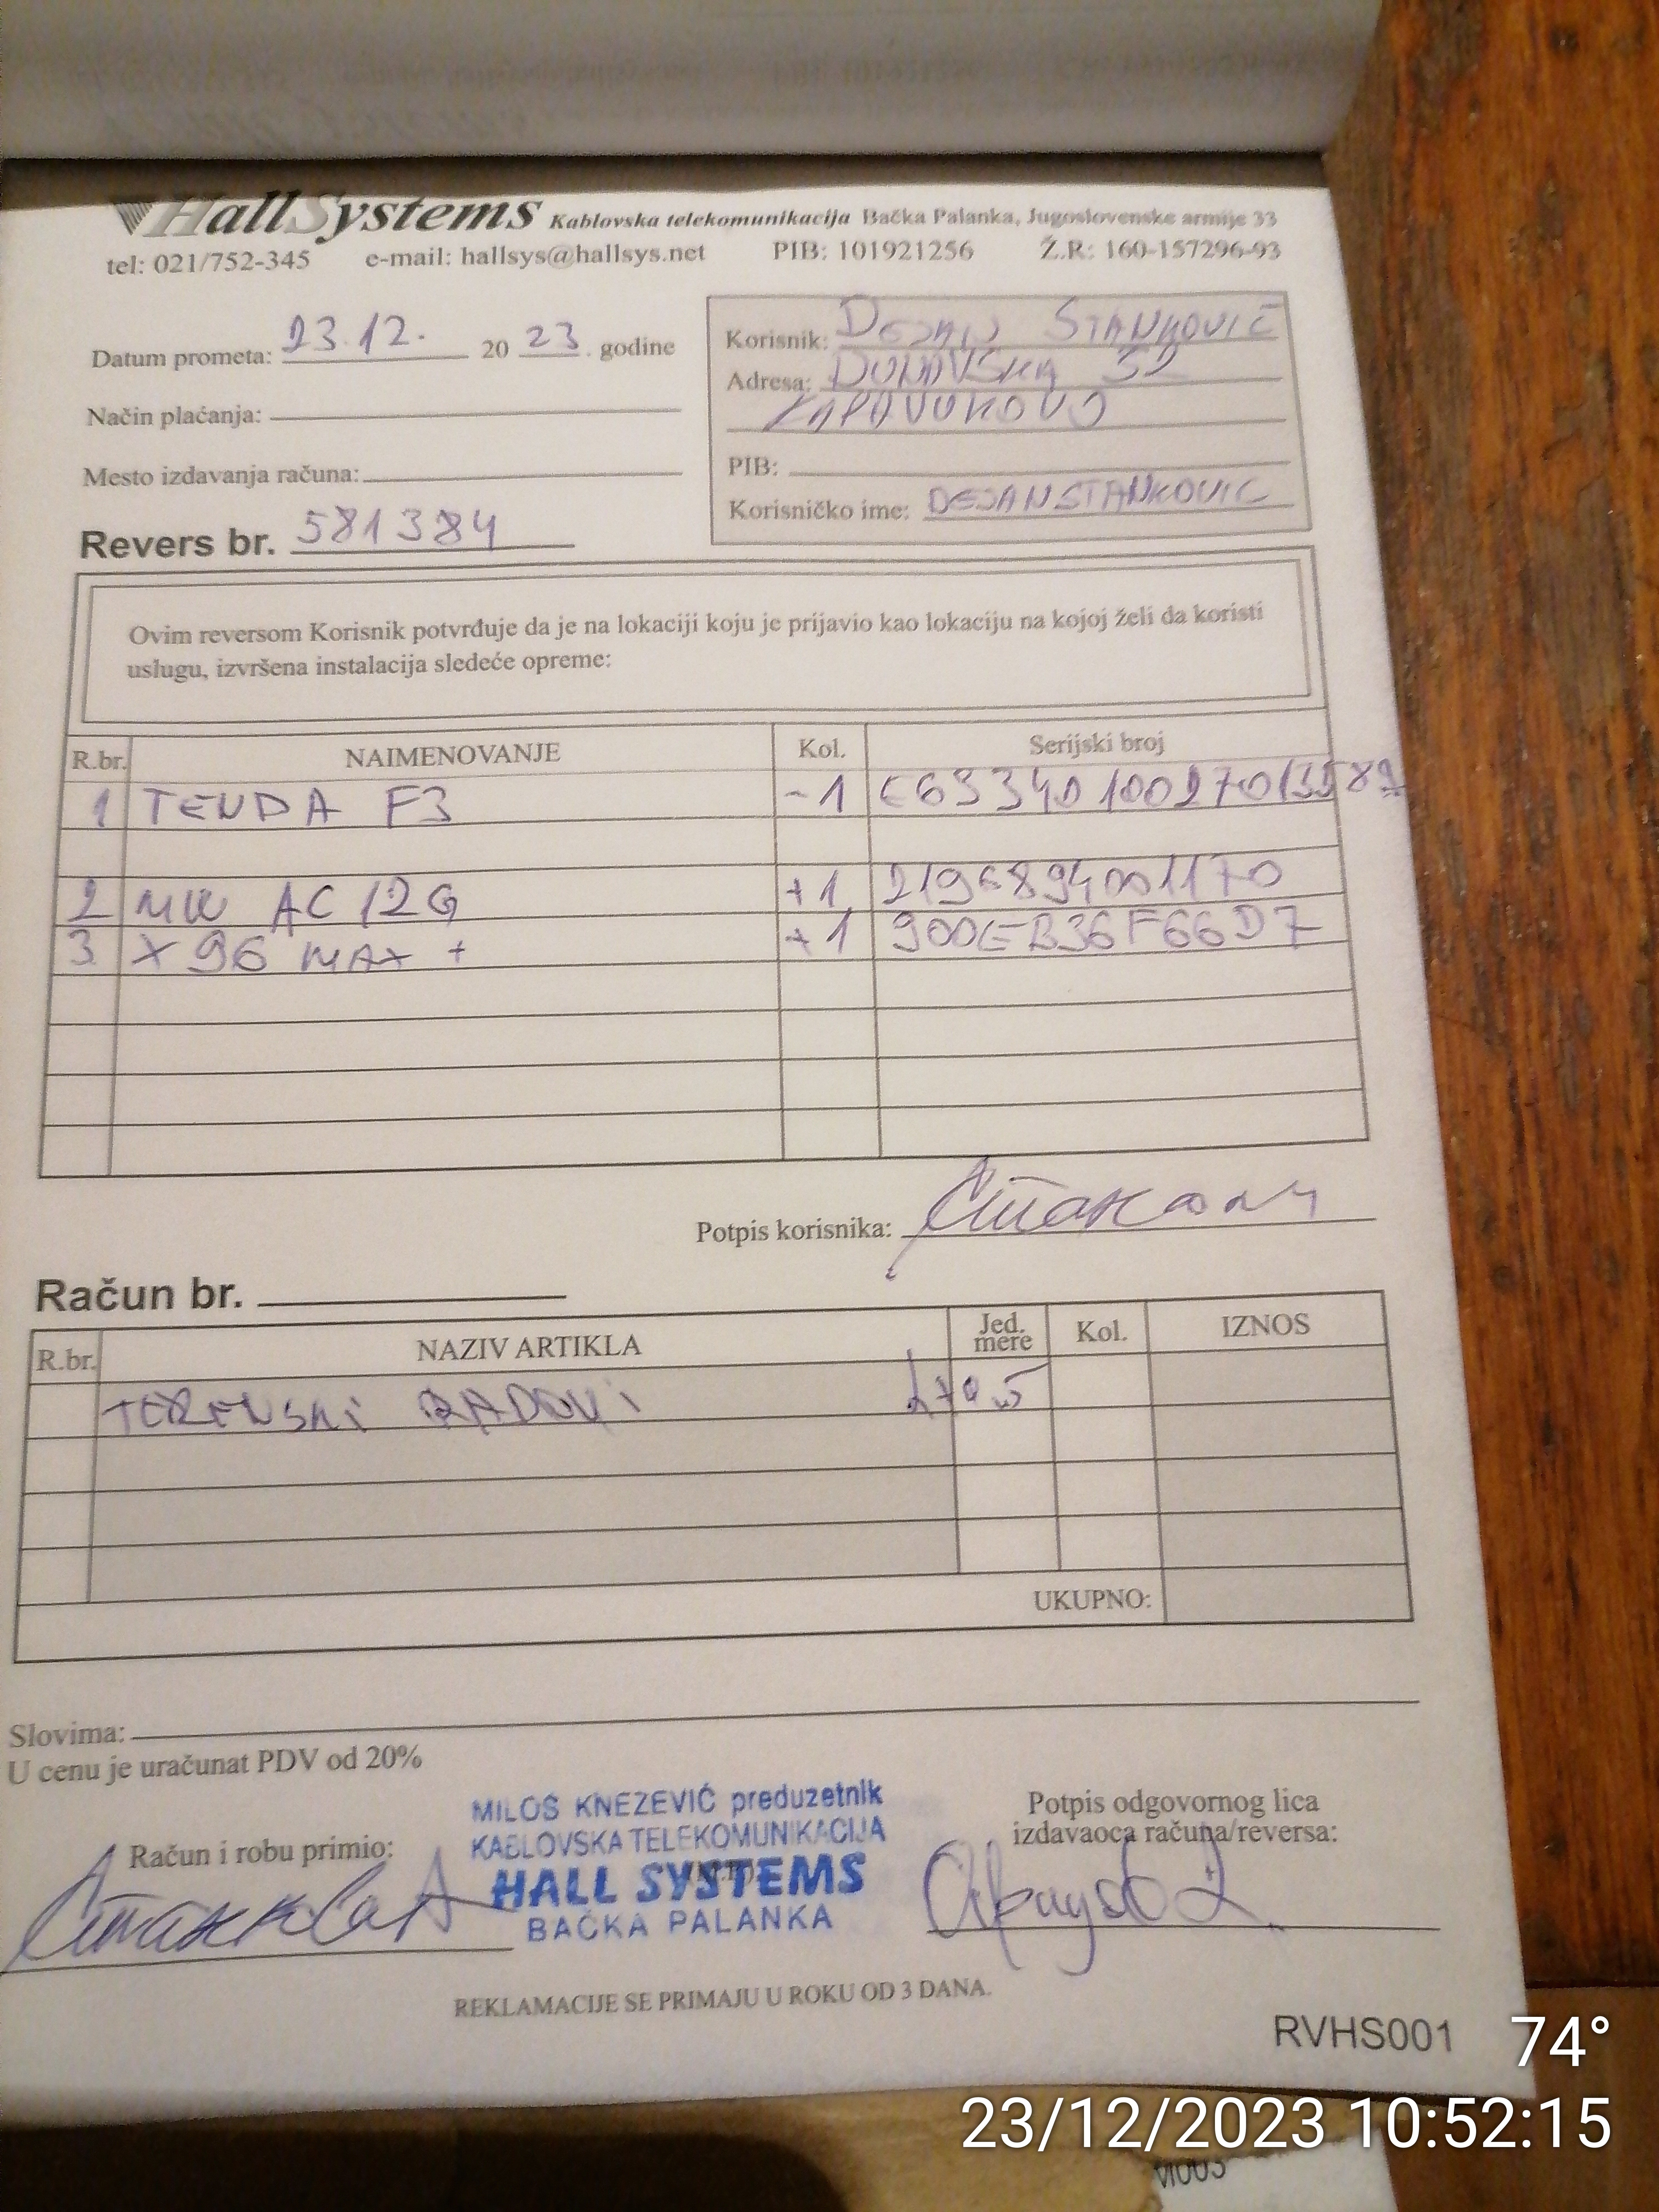 HallSystems Kablovska telekomunikacija Bačka Palanka, Jugoslovenske armije 33
tel: 021/752-345 e-mail: hallsys@hallsys.net PIB: 101921256 Ž.R: 160-157296-93
Datum prometa: 23.12. 20 23. godine
Način plaćanja:
Mesto izdavanja računa:
Revers br. 581384
Korisnik: DEJAN STANKOVIĆ
Adresa: DUNAVSKA 32
PIB:
Korisničko ime: DEJANSTANKOVIC
Ovim reversom Korisnik potvrđuje da je na lokaciji koju je prijavio kao lokaciju na kojoj želi da koristi
uslugu, izvršena instalacija sledeće opreme:
R.br. NAIMENOVANJE Kol. Serijski broj
1 TENDA F3 -1
2 MW AC12G +1 2196894001170
3 X96 MAX + +1 900EB36F66D7
Potpis korisnika:
Račun br.
R.br. NAZIV ARTIKLA Jed. mere Kol. IZNOS
TERENSKI RADOVI
UKUPNO:
Slovima:
U cenu je uračunat PDV od 20%
Račun i robu primio:
MILOŠ KNEZEVIĆ preduzetnik
KABLOVSKA TELEKOMUNIKACIJA
HALL SYSTEMS
BAČKA PALANKA
Potpis odgovornog lica
izdavaoca računa/reversa:
REKLAMACIJE SE PRIMAJU U ROKU OD 3 DANA.
RVHS001
74°
23/12/2023 10:52:15